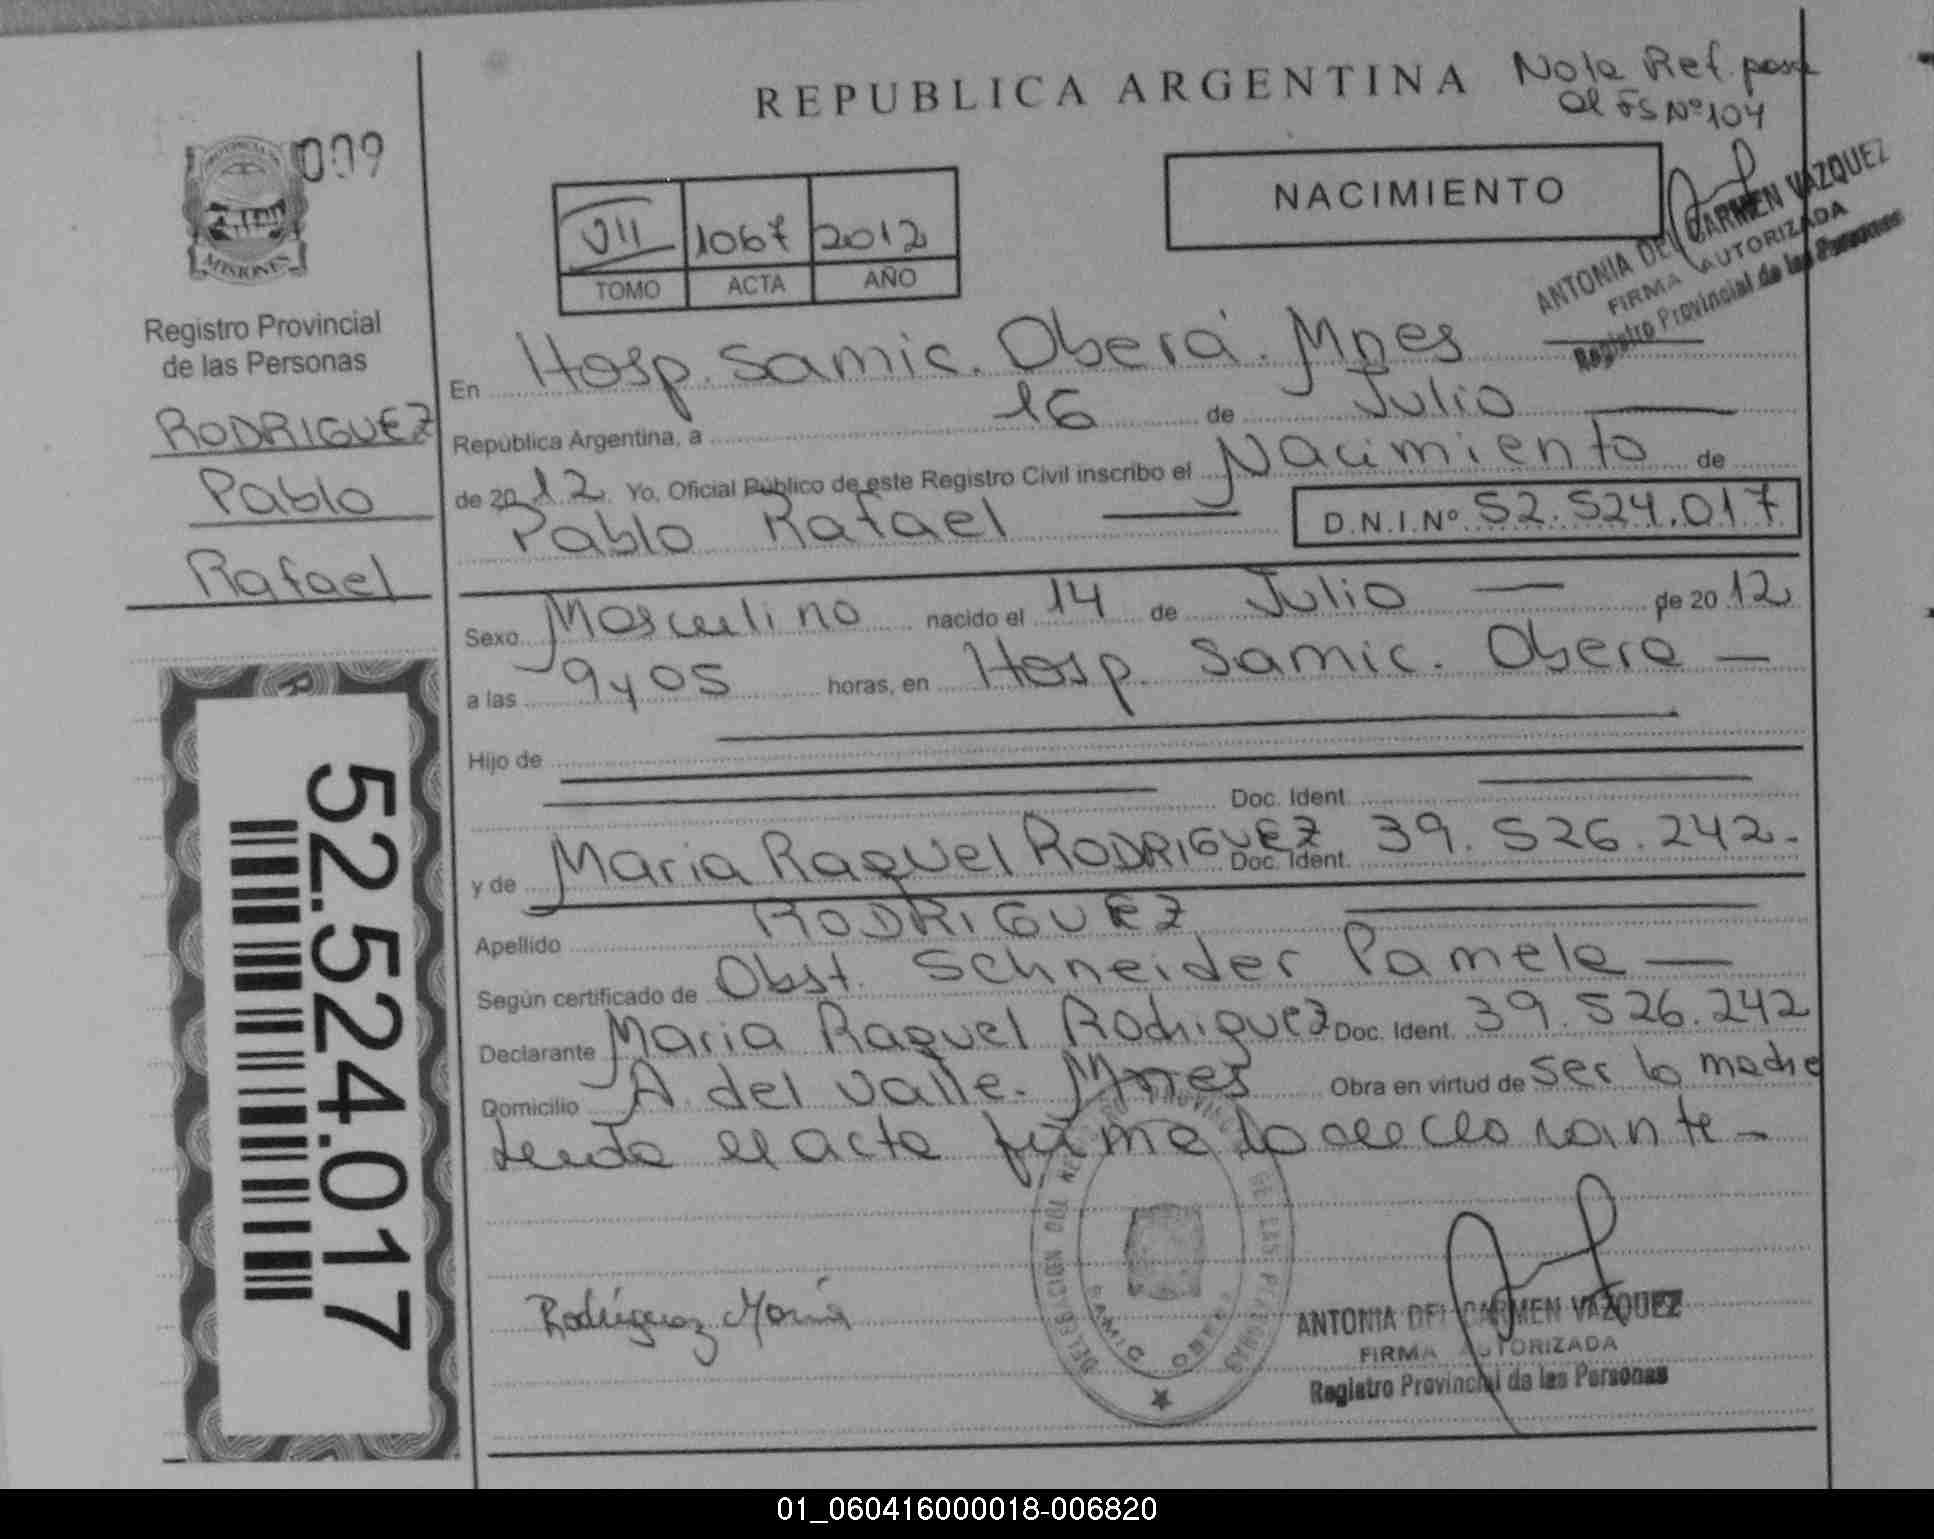 REPUBLICA ARGENTINA
Nota Ref. pase
al FS Nº 104
009
PROVINCIA DE
MISIONES
Registro Provincial
de las Personas
RODRIGUEZ
Pablo
Rafael
VII 1067 2012
TOMO ACTA AÑO
NACIMIENTO
ANTONIA DEL CARMEN VAZQUEZ
FIRMA AUTORIZADA
Registro Provincial de las Personas
En Hosp. Samic. Oberá. Mnes
República Argentina, a 16 de Julio
de 2012 Yo, Oficial Público de este Registro Civil inscribo el Nacimiento de
Pablo Rafael D.N.I.Nº 52.524.017
Sexo Masculino nacido el 14 de Julio de 2012
a las 9 y 05 horas, en Hosp. Samic. Obera
Hijo de
Doc. Ident.
y de Maria Raquel RODRIGUEZ Doc. Ident. 39.526.242.-
Apellido RODRIGUEZ
Según certificado de Obst. Schneider Pamela
Declarante Maria Raquel Rodriguez Doc. Ident. 39.526.242
Domicilio A. del Valle. Mnes Obra en virtud de ser la madre
leida el acta firma la declarante.-
52.524.017
Rodriguez Maria
DELEGACION DEL REGISTRO PROVINCIAL DE LAS PERSONAS
SAMIC OBERA
ANTONIA DEL CARMEN VAZQUEZ
FIRMA AUTORIZADA
Registro Provincial de las Personas
01_060416000018-006820